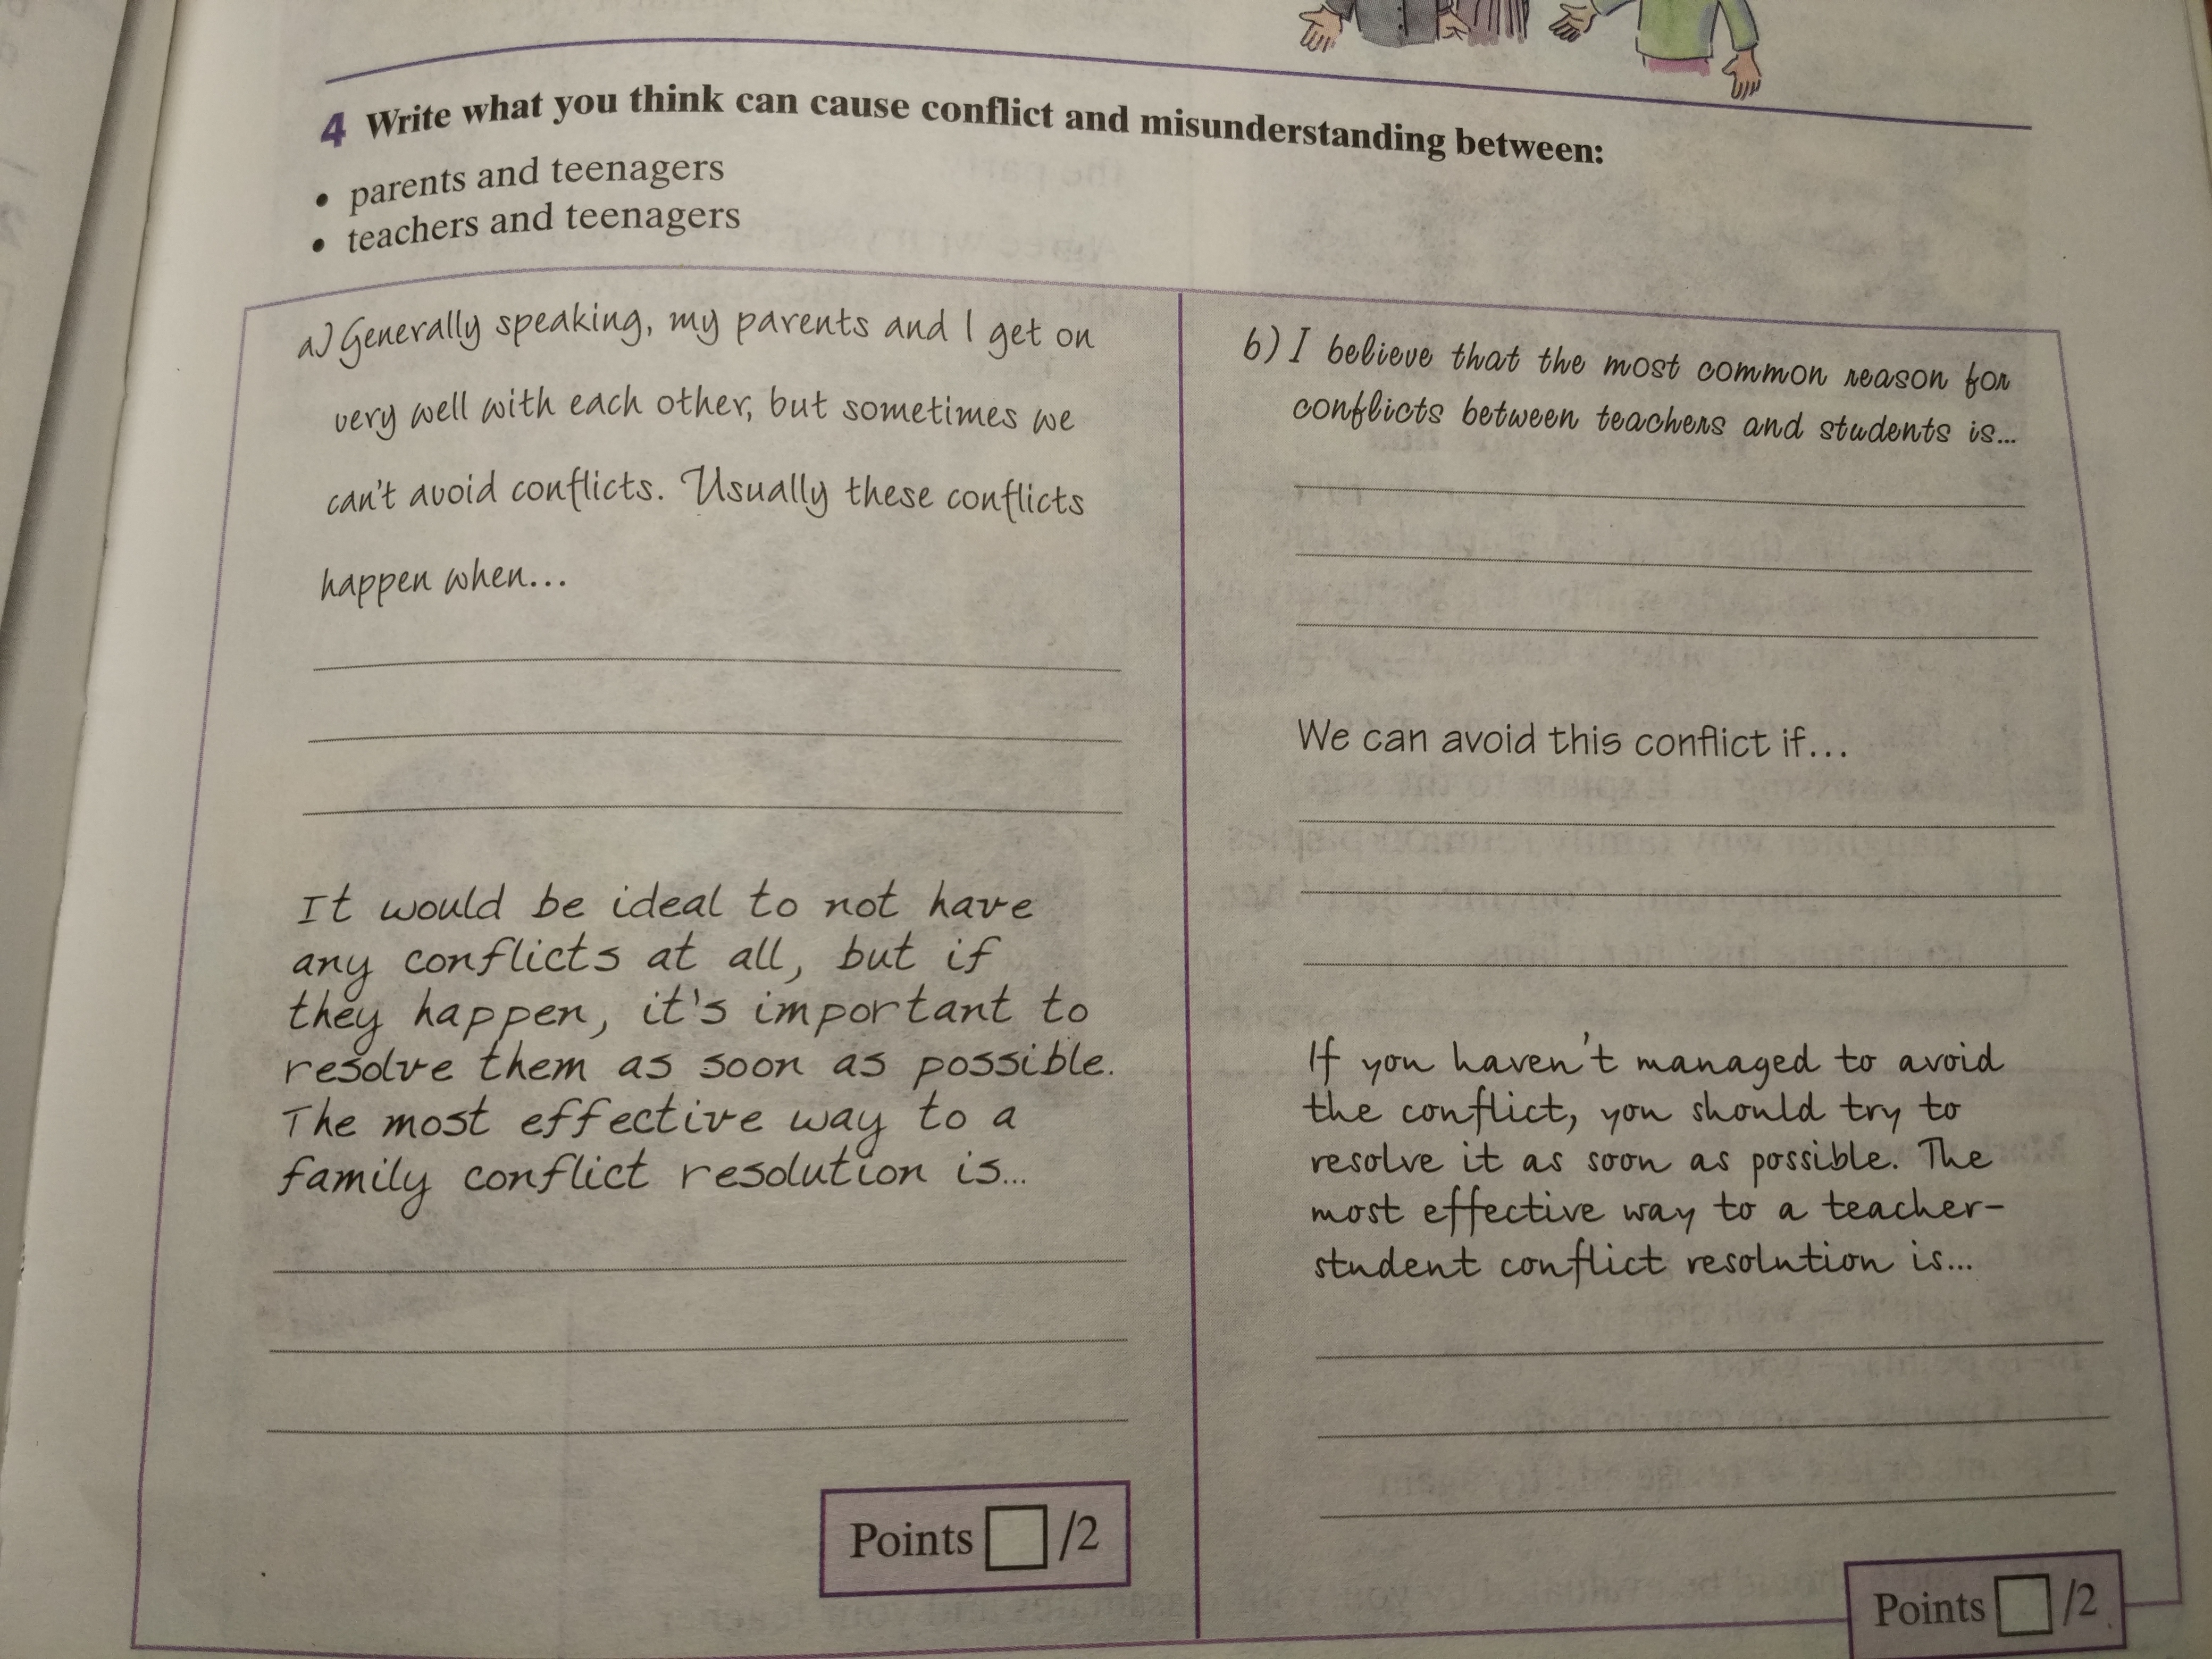 4 Write what you think can cause conflict and misunderstanding between:
• parents and teenagers
• teachers and teenagers
a) Generally speaking, my parents and I get on
very well with each other, but sometimes we
can't avoid conflicts. Usually these conflicts
happen when...
It would be ideal to not have
any conflicts at all, but if
they happen, it's important to
resolve them as soon as possible.
The most effective way to a
family conflict resolution is...
Points /2
b) I believe that the most common reason for
conflicts between teachers and students is...
We can avoid this conflict if...
If you haven't managed to avoid
the conflict, you should try to
resolve it as soon as possible. The
most effective way to a teacher-
student conflict resolution is...
Points /2